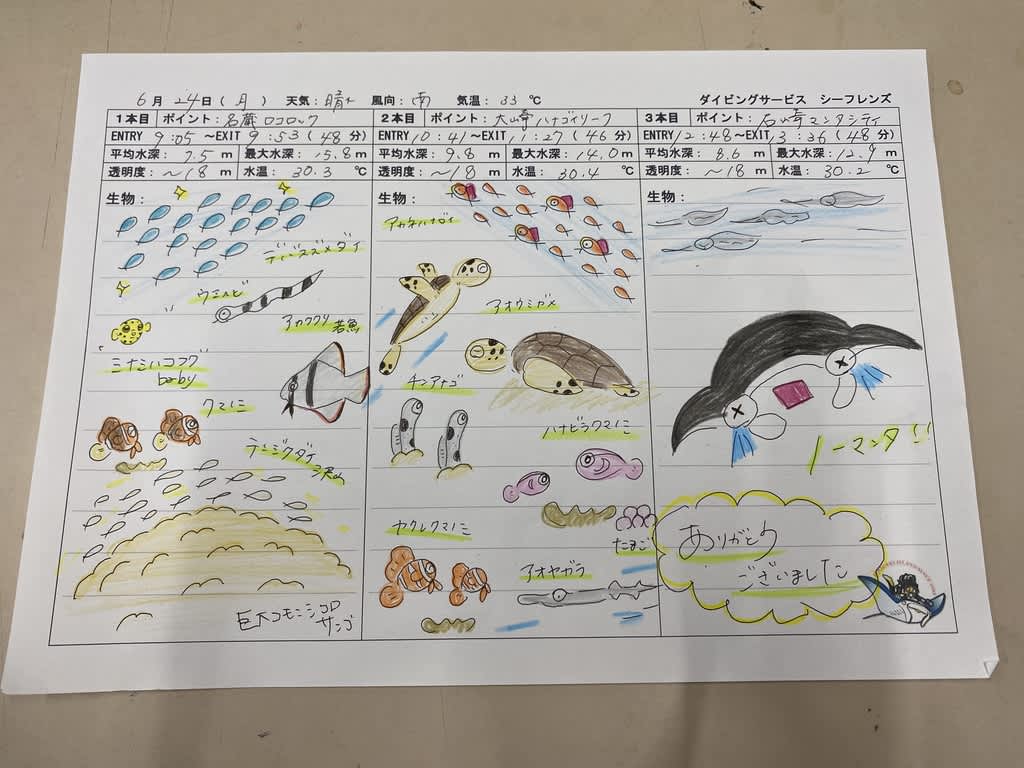 6月 24日(月) 天気:晴れ 風向:南 気温:33℃ ダイビングサービス シーフレンズ
1本目 ポイント:名蔵 ロコロック
ENTRY 9:05 ~EXIT 9:53(48分)
平均水深: 7.5 m 最大水深: 15.8 m
透明度: ~18 m 水温: 30.3 ℃
生物:
デバスズメダイ
ウミヘビ
アカククリ 若魚
ミナミハコフグ
baby
クマノミ
テンジクダイ
沢山
巨大コモンシコロ
サンゴ
2本目 ポイント:大崎ハナゴイリーフ
ENTRY 10:41~EXIT 11:27(46分)
平均水深: 9.8 m 最大水深: 14.0 m
透明度: ~18 m 水温: 30.4 ℃
生物:
アカネハナゴイ
アオウミガメ
チンアナゴ
ハナビラクマノミ
たまご
ヤクレクマノミ
アオヤガラ
3本目 ポイント:石崎マンタシティ
ENTRY 12:48~EXIT 13:36(48分)
平均水深: 8.6 m 最大水深: 12.9 m
透明度: ~18 m 水温: 30.2 ℃
生物:
ノーマンタ!!
ありがとう
ございました